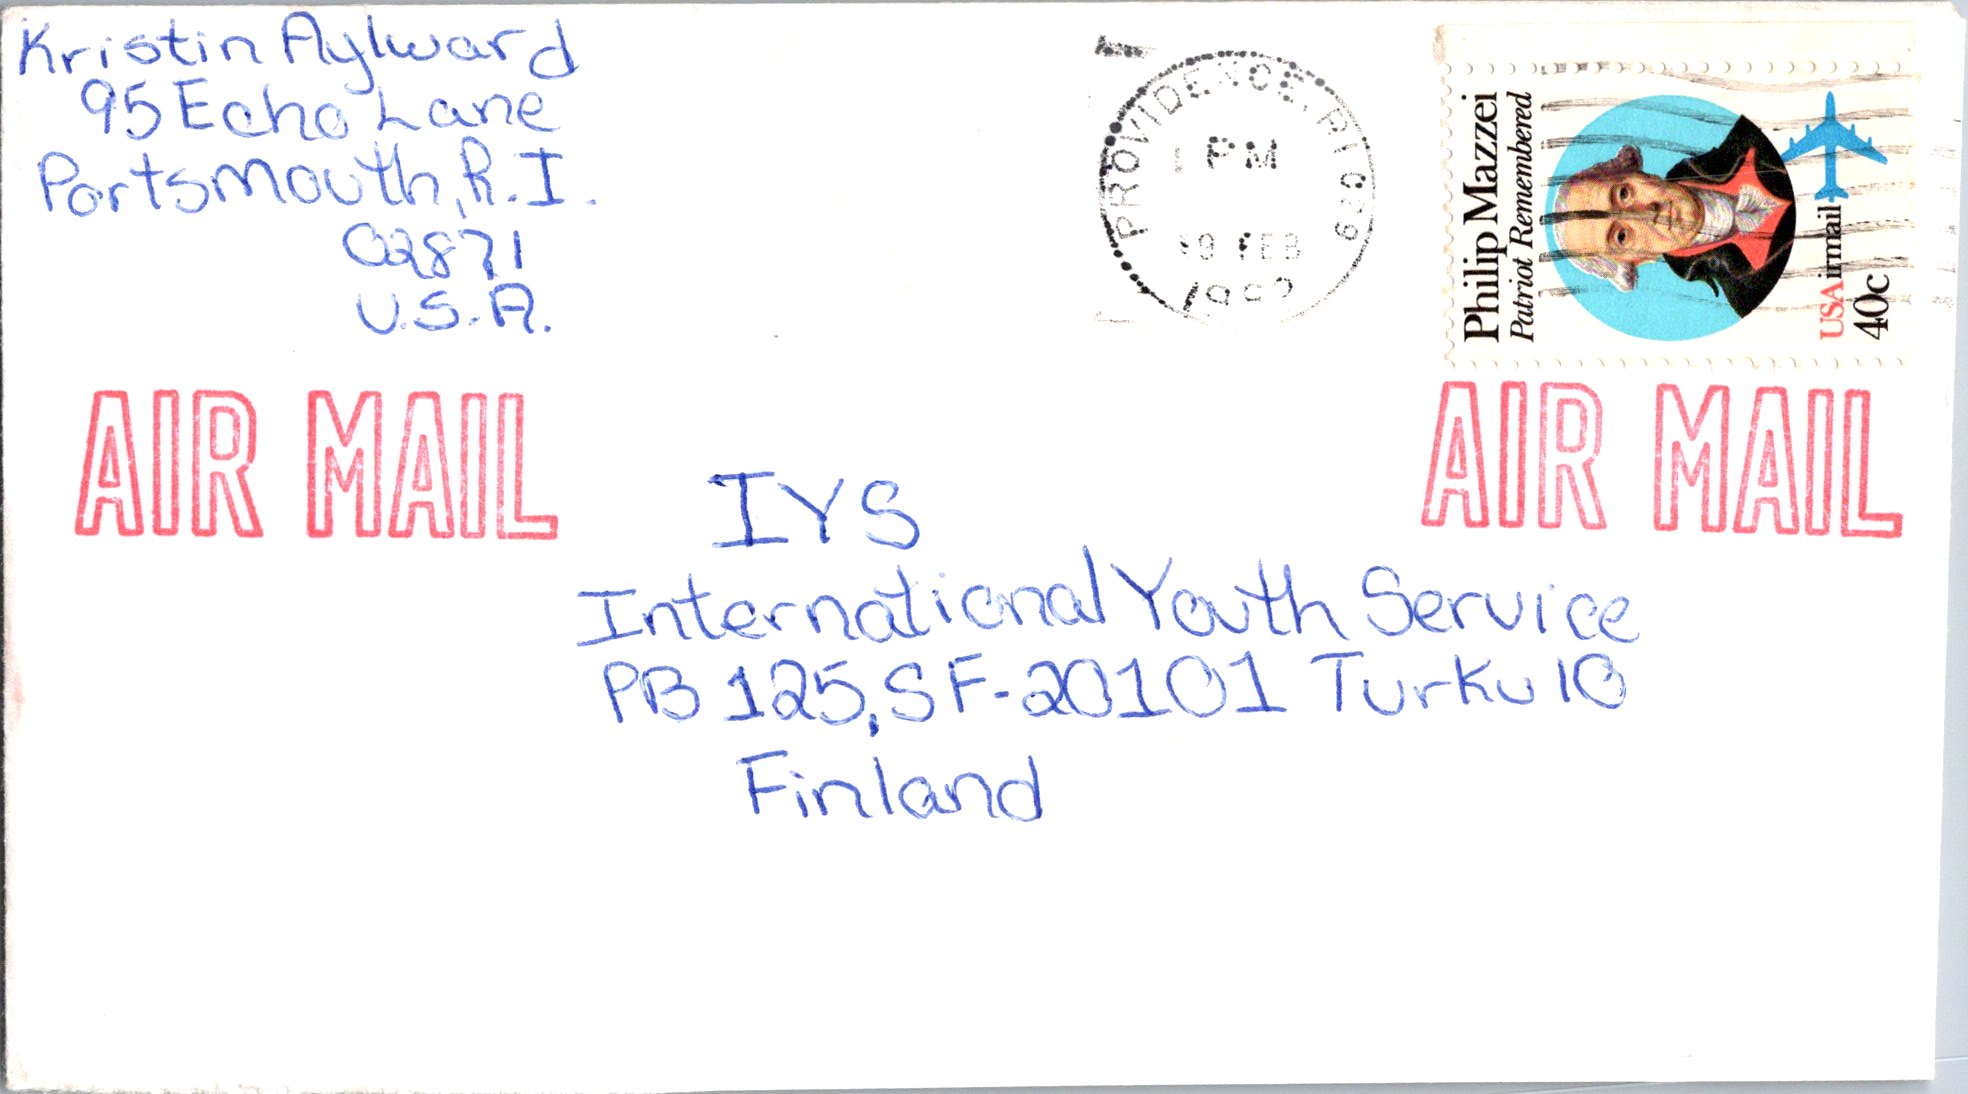 Kristin Aylward
95 Echo Lane
Portsmouth, R.I.
02871
U.S.A.
PROVIDENCE, RI 029
PM
FEB
Philip Mazzei
Patriot Remembered
USAirmail
40c
AIR MAIL
AIR MAIL
IYS
International Youth Service
PB 125, SF-20101 Turku 10
Finland